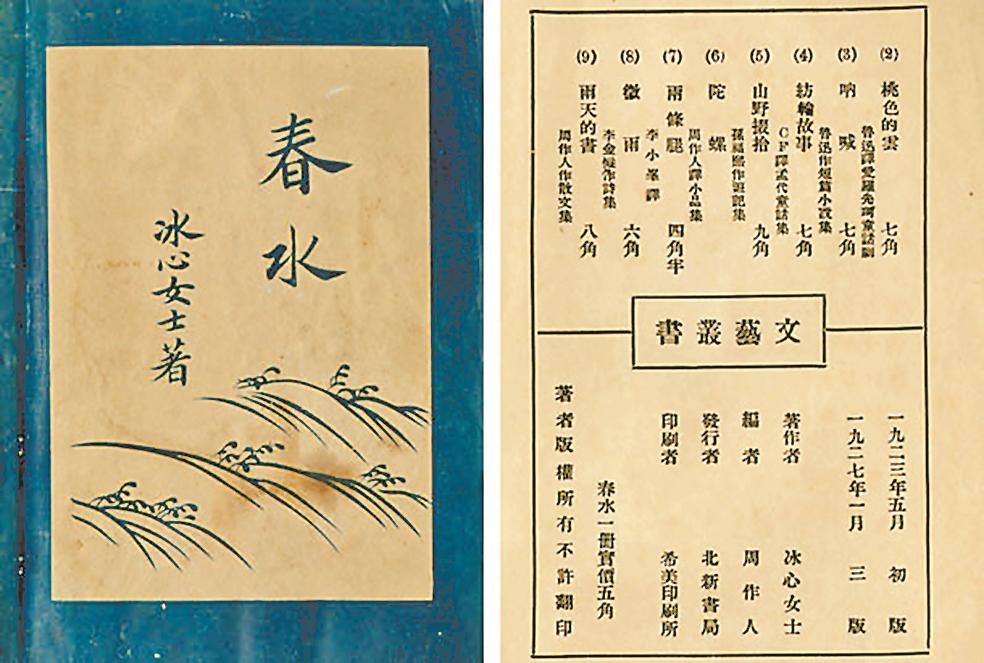 春水
冰心女士著
(2) 桃色的雲 七角
魯迅譯愛羅先珂童話劇
(3) 吶喊 七角
魯迅作短篇小說集
(4) 紡輪故事 七角
CF譯孟代童話集
(5) 山野掇拾 九角
孫福熙作遊記集
(6) 陀螺
周作人譯小品集
(7) 兩條腿 四角半
李小峯譯
(8) 微雨 六角
李金髮作詩集
(9) 雨天的書 八角
周作人作散文集
文藝叢書
一九二三年五月 初版
一九二七年一月 三版
著作者 冰心女士
編者 周作人
發行者 北新書局
印刷者 希美印刷所
春水一冊實價五角
著者版權所有不許翻印